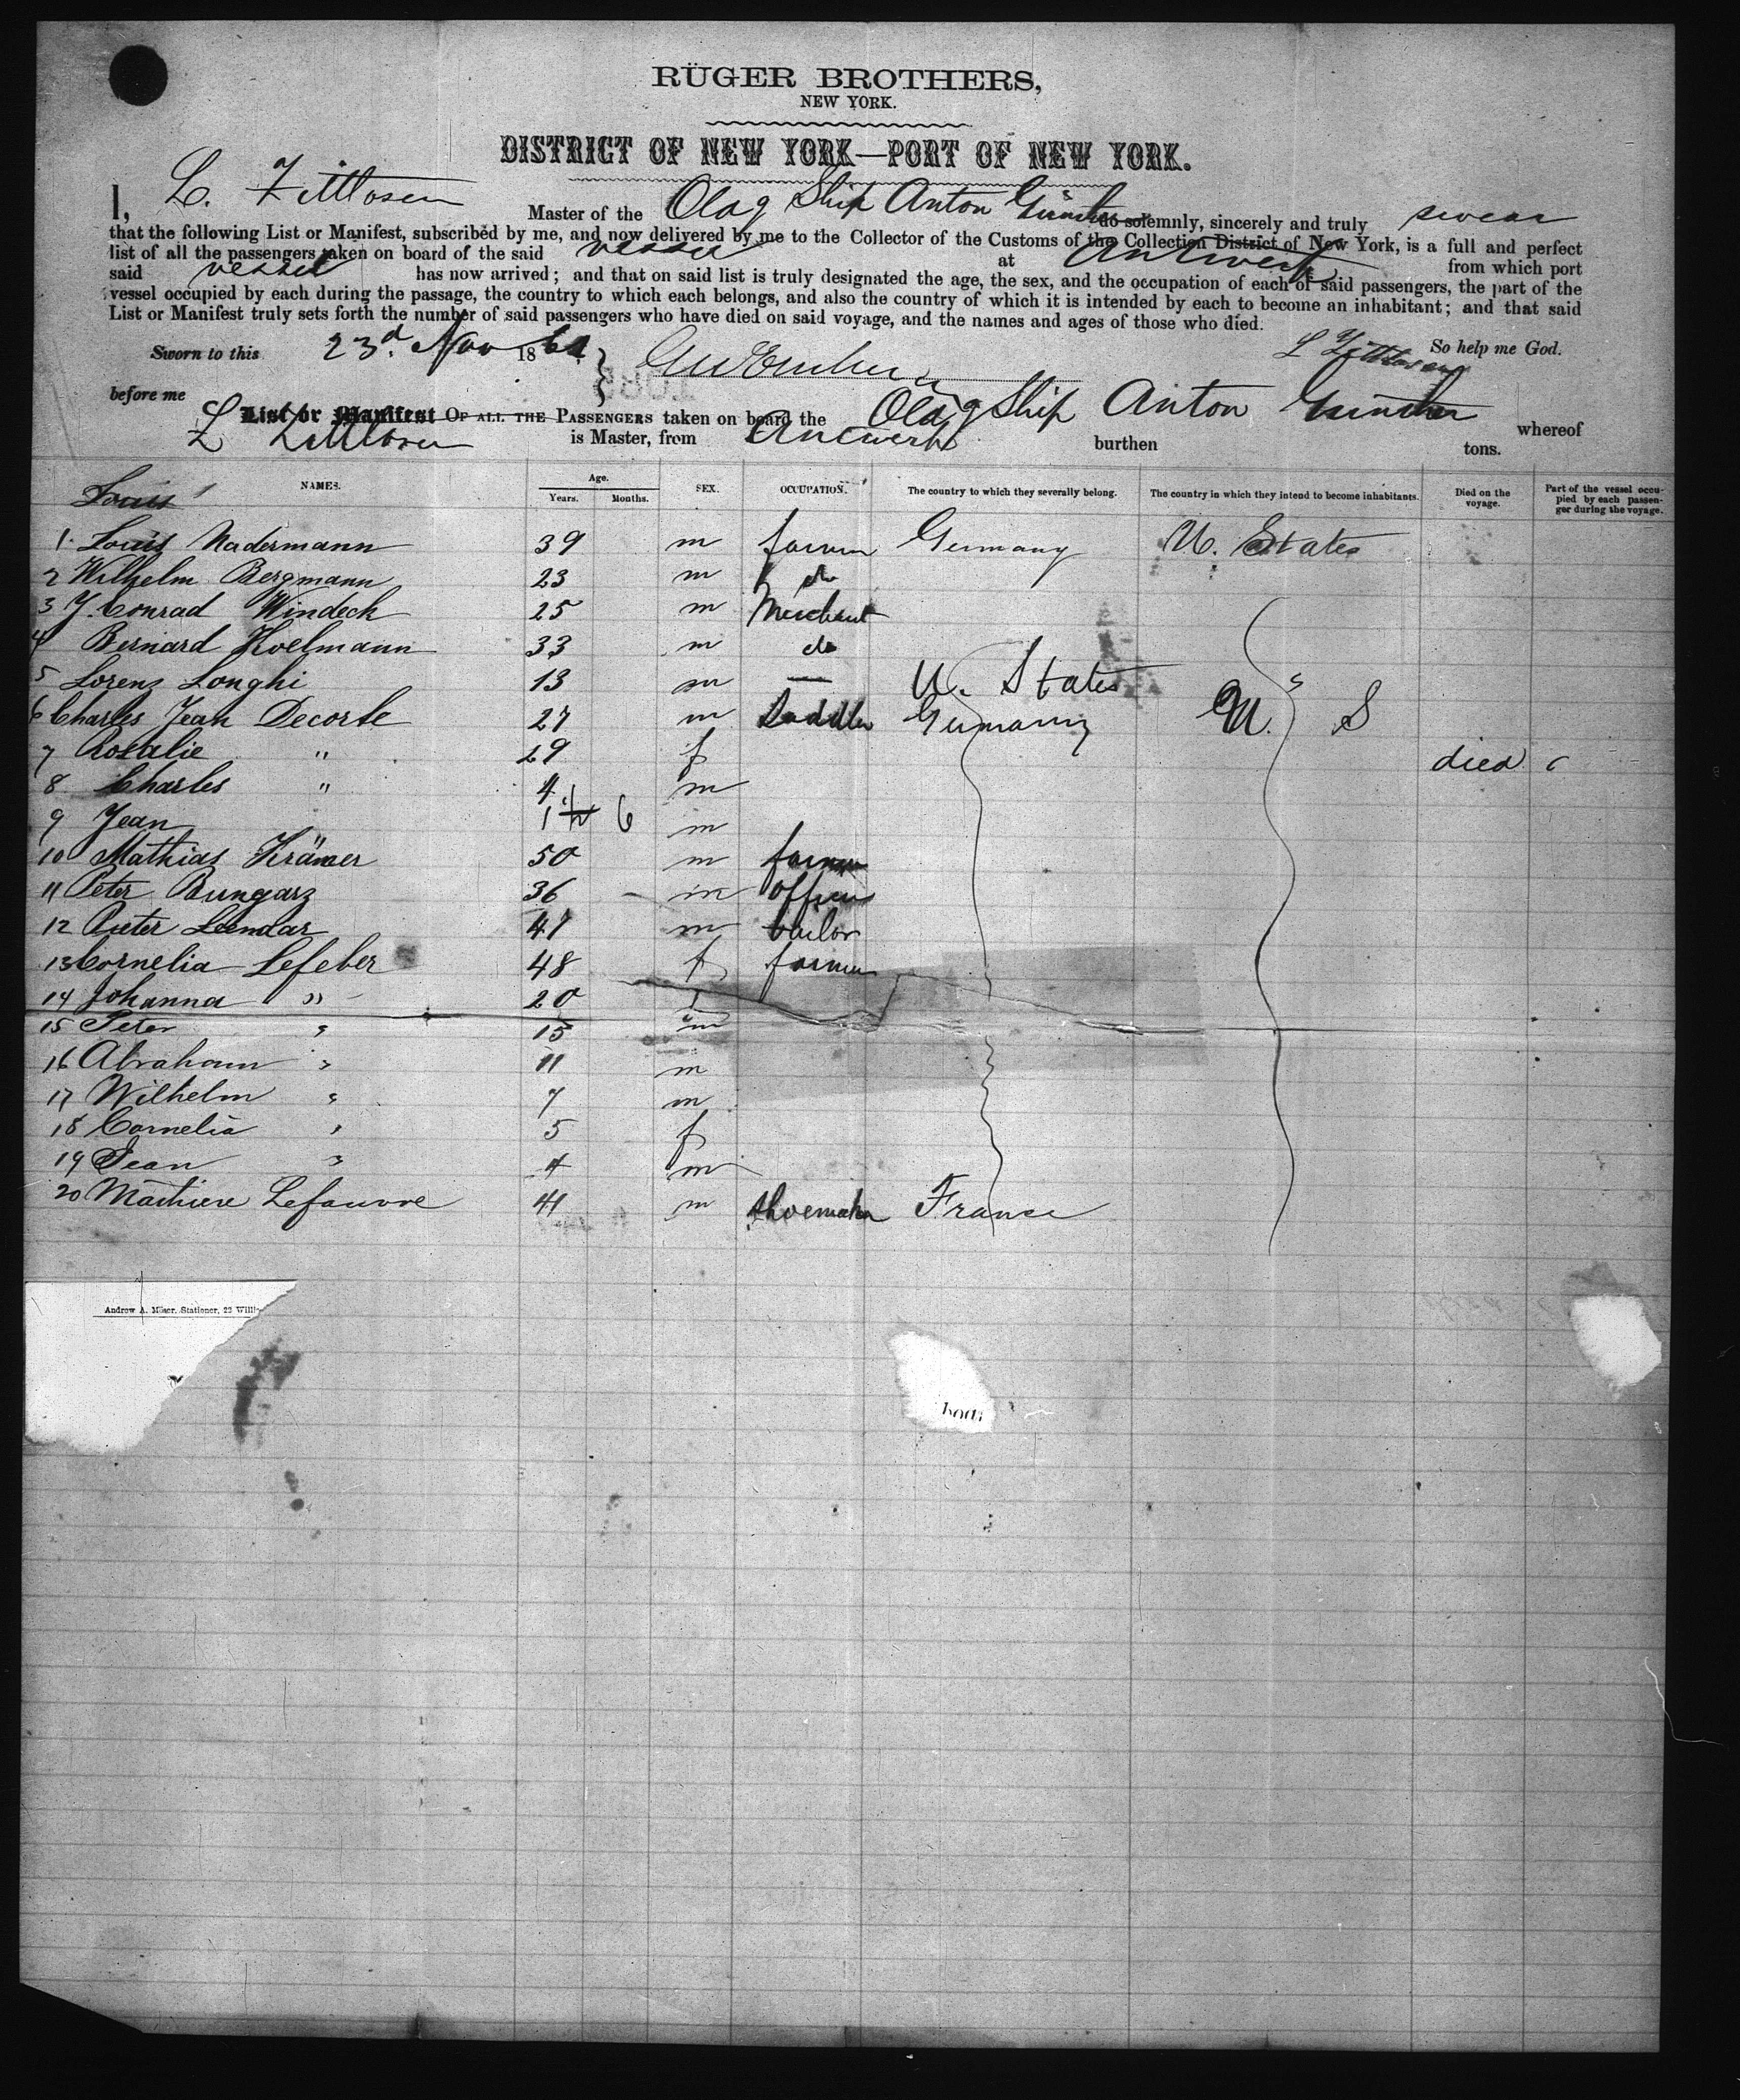 RÜGER BROTHERS,
NEW YORK.
DISTRICT OF NEW YORK—PORT OF NEW YORK.
I, Master of the Oldg Ship Anton Günther do solemnly, sincerely and truly swear
that the following List or Manifest, subscribed by me, and now delivered by me to the Collector of the Customs of the Collection District of New York, is a full and perfect
list of all the passengers taken on board of the said vessel at Antwerp from which port
said vessel has now arrived; and that on said list is truly designated the age, the sex, and the occupation of each of said passengers, the part of the
vessel occupied by each during the passage, the country to which each belongs, and also the country of which it is intended by each to become an inhabitant; and that said
List or Manifest truly sets forth the number of said passengers who have died on said voyage, and the names and ages of those who died.
So help me God.
Sworn to this 23d. Nov 186
before me
List or Manifest OF ALL THE PASSENGERS taken on board the Oldg Ship Anton Günther whereof
is Master, from Antwerp burthen tons.
NAMES. Age. Years. Months. SEX. OCCUPATION. The country to which they severally belong. The country in which they intend to become inhabitants. Died on the voyage. Part of the vessel occupied by each passenger during the voyage.
Louis
1. Louis Nadermann 39 m farmer Germany U. States
2 Wilhelm Bergmann 23 m do
3 J. Conrad Windeck 25 m Merchant
4 Bernard Hoelmann 33 m do
5 Lorenz Longhi 13 m — U. States
6 Charles Jean Decorte 27 m Saddler Germany U. S
7 Rosalie " 29 f died
8 Charles " 4 m
9 Jean 1 6 m
10 Mathias Krämer 50 m farmer
11 Peter Bungarz 36 - m Officer
12 Pieter Leendar 47 m tailor
13 Cornelia Lefeber 48 f farmer
14 Johanna " 20 f
15 Peter " 15 m
16 Abraham " 11 m
17 Wilhelm " 7 m
18 Cornelia " 5 f
19 Jean " 4 m
20 Lefauvre 41 m shoemaker France
Andrew A. Moser, Stationer, 22 Willi